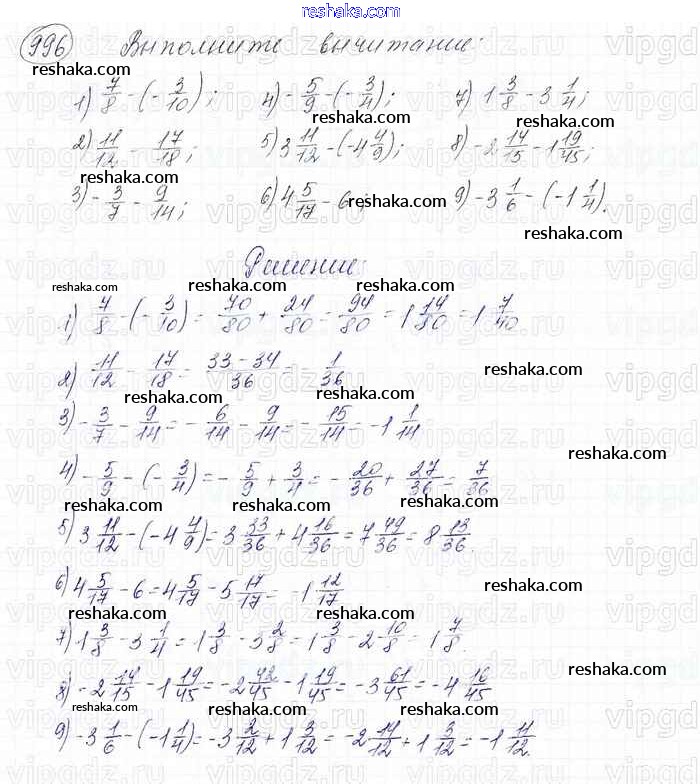 reshaka.com
996 Выполните вычитание:
reshaka.com
1) 7/8 - (-3/10); 4) -5/9 - (-3/4); 7) 1 3/8 - 3 1/4;
reshaka.com reshaka.com
2) 11/12 - 17/18; 5) 3 11/12 - (-4 4/9); 8) -2 14/15 - 1 19/45;
reshaka.com
3) -3/7 - 9/14; 6) 4 5/17 - 6; 9) -3 1/6 - (-1 1/4).
reshaka.com reshaka.com
reshaka.com
Решение:
reshaka.com reshaka.com reshaka.com
1) 7/8 - (-3/10) = 70/80 + 24/80 = 94/80 = 1 14/80 = 1 7/40
2) 11/12 - 17/18 = (33-34)/36 = -1/36
reshaka.com reshaka.com reshaka.com
3) -3/7 - 9/14 = -6/14 - 9/14 = -15/14 = -1 1/14
reshaka.com
4) -5/9 - (-3/4) = -5/9 + 3/4 = -20/36 + 27/36 = 7/36
reshaka.com reshaka.com
5) 3 11/12 - (-4 4/9) = 3 33/36 + 4 16/36 = 7 49/36 = 8 13/36.
reshaka.com
6) 4 5/17 - 6 = 4 5/17 - 5 17/17 = -1 12/17
reshaka.com reshaka.com
7) 1 3/8 - 3 1/4 = 1 3/8 - 3 2/8 = 1 3/8 - 2 10/8 = 1 7/8.
reshaka.com reshaka.com
8) -2 14/15 - 1 19/45 = -2 42/45 - 1 19/45 = -3 61/45 = -4 16/45
reshaka.com
9) -3 1/6 - (-1 1/4) = -3 2/12 + 1 3/12 = -2 14/12 + 1 3/12 = -1 11/12.
reshaka.com reshaka.com reshaka.com